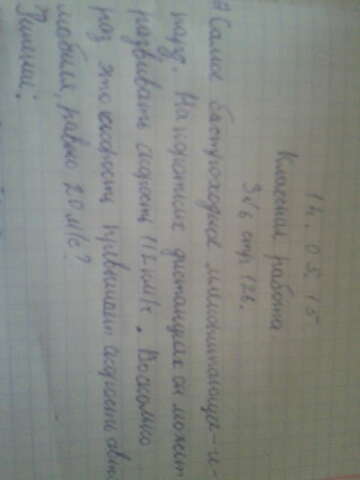 14.05.15
Класная работа
З√6 стр 126.
Самое быстроходное млекопитающее-ге-
пард. На коротких дистанциях он может
развивать скорость 112 км/ч. Восколько
раз это скорость превышает скорость авто
мобиля, равно 20 м/с?